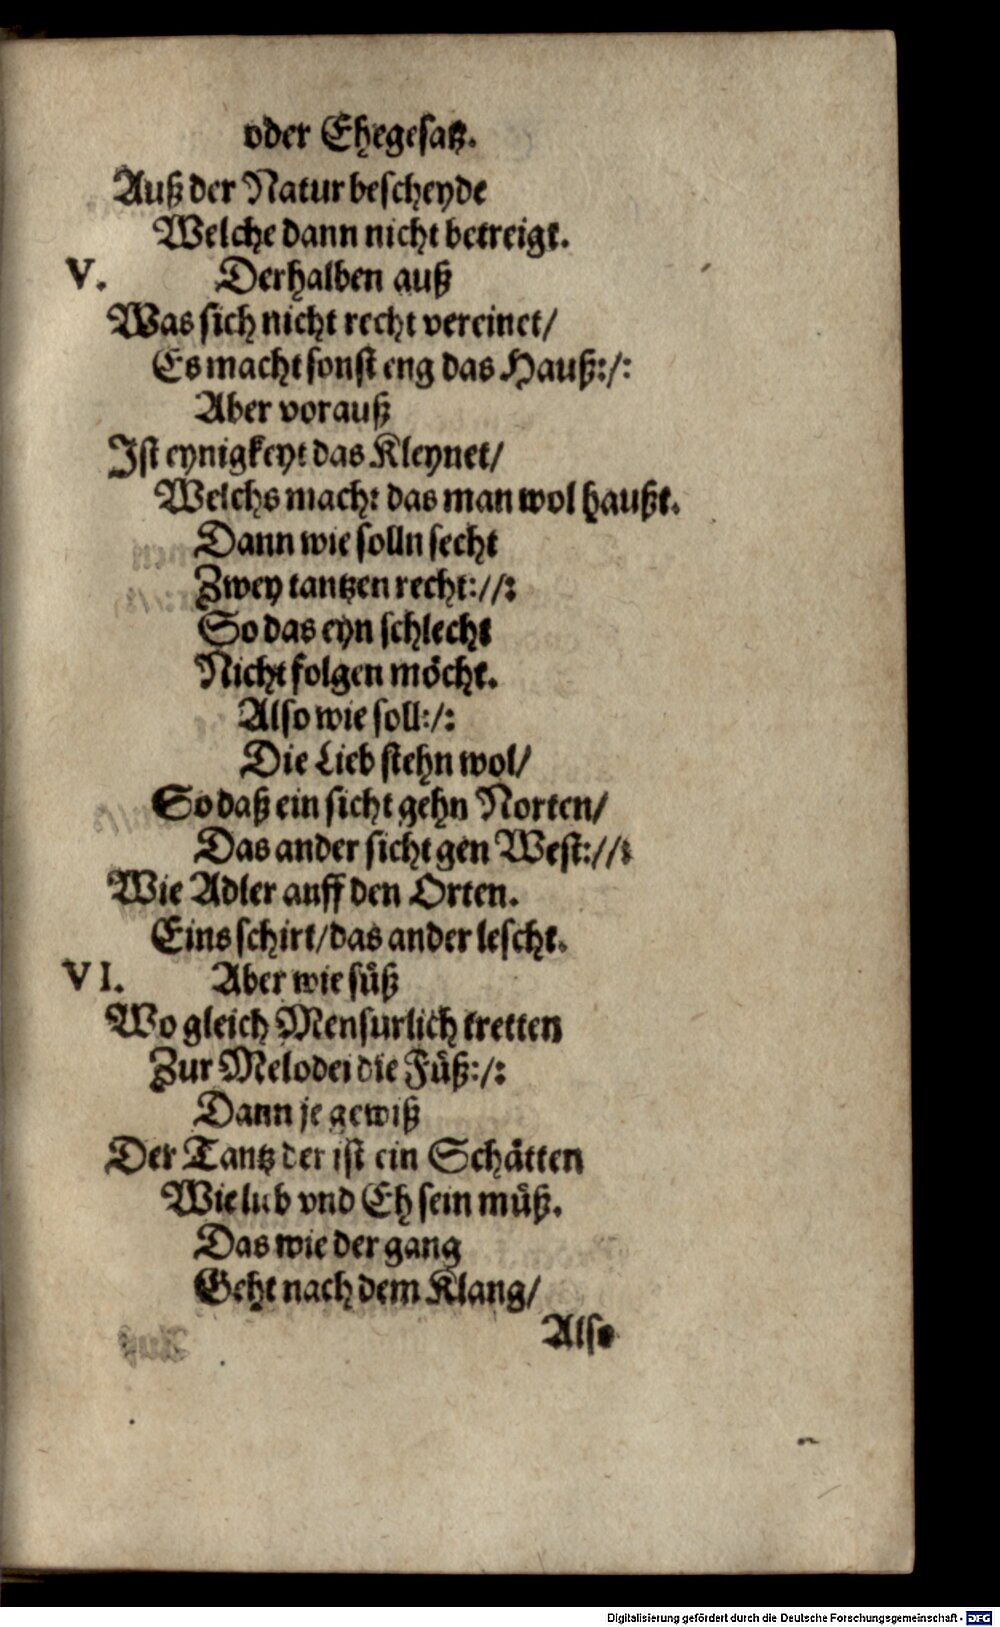 oder Ehegesatz.
Auß der Natur bescheyde
Welche dann nicht betreigt.
V. Derhalben auß
Was sich nicht recht vereinet/
Es macht sonst eng das Hauß:/:
Aber vorauß
Ist eynigkeyt das Kleynet/
Welchs macht das man wol haußt.
Dann wie solln secht
Zwey tantzen recht://:
So das eyn schlecht
Nicht folgen möcht.
Also wie soll:/:
Die Lieb stehn wol/
So daß ein sicht gehn Norten/
Das ander sicht gen West://:
Wie Adler auff den Orten.
Eins schirt/das ander lescht.
VI. Aber wie süß
Wo gleich Mensurlich tretten
Zur Melodei die Füß:/:
Dann je gewiß
Der Tantz der ist ein Schätten
Wie lieb vnd Eh sein müß.
Das wie der gang
Geht nach dem Klang/
Also
Digitalisierung gefördert durch die Deutsche Forschungsgemeinschaft - DFG